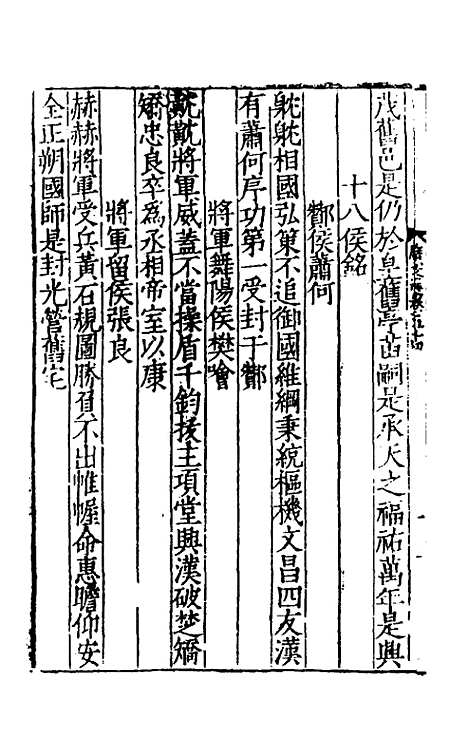 茂舊邑是仍於皇舊亭苗嗣是承天之福祐萬年是興
十八侯銘
酇侯蕭何
躭躭相國弘策不追御國維綱秉統樞機文昌四友漢
有蕭何序功第一受封于酇
將軍舞陽侯樊噲
躭躭將軍威蓋不當操盾千鈞拔主項堂興漢破楚矯
矯忠良卒為丞相帝室以康
將軍留侯張良
赫赫將軍受兵黃石規圖勝負不出帷幄命惠瞻仰安
全正朔國師是封光管舊宅